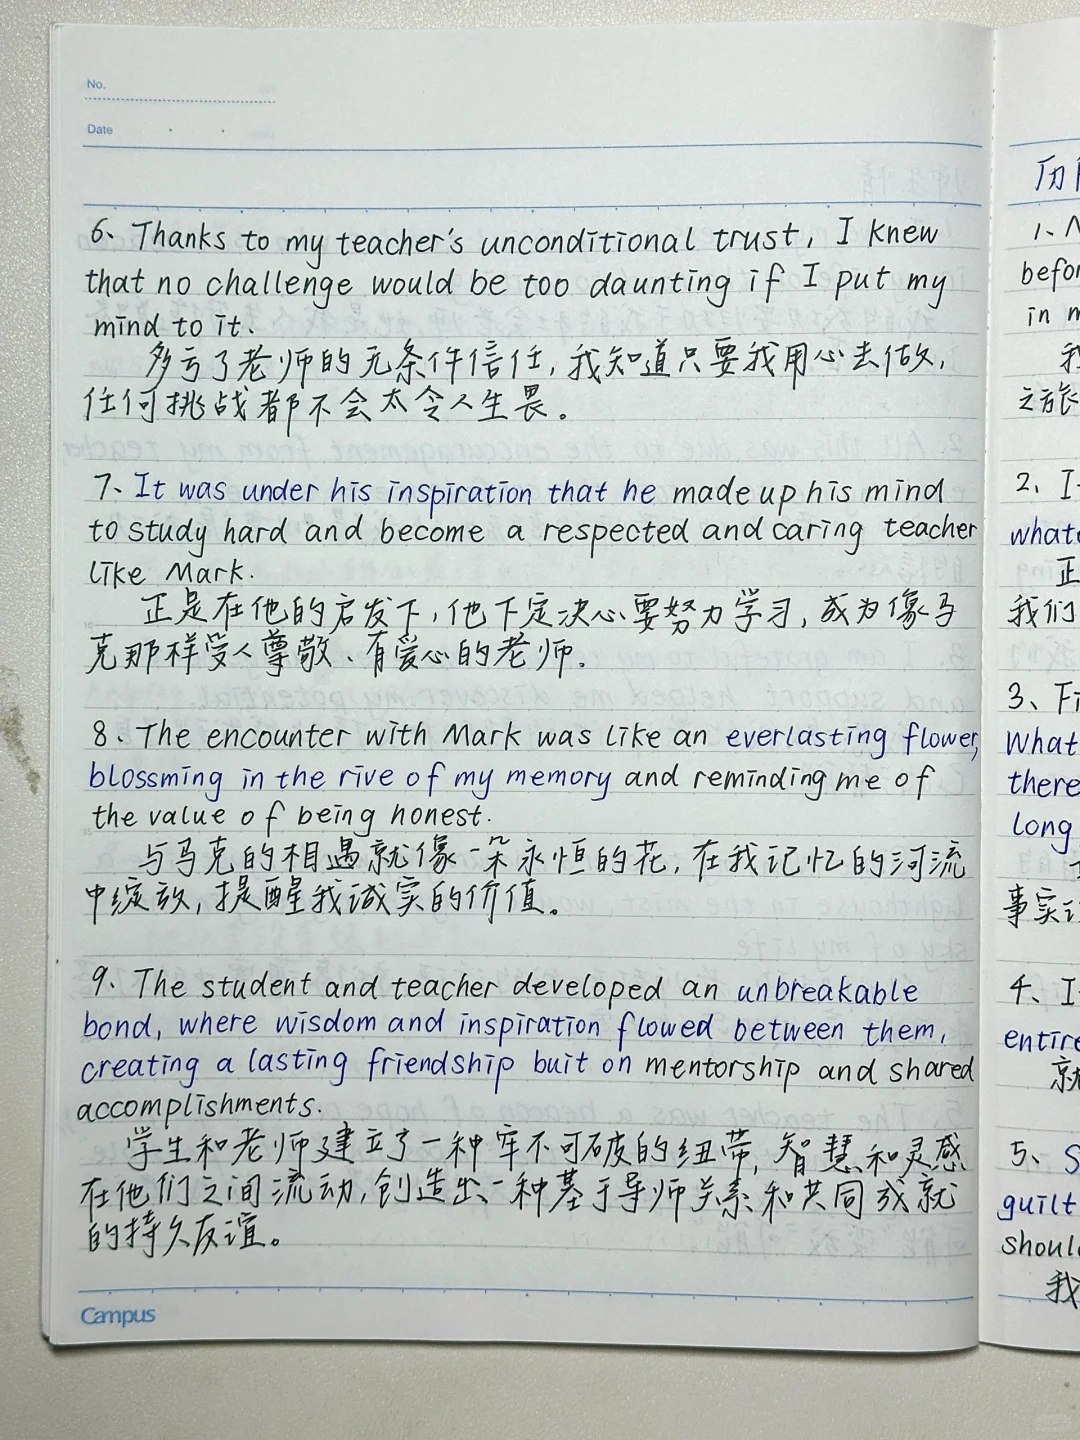 No.
Date
6、Thanks to my teacher's unconditional trust, I knew
that no challenge would be too daunting if I put my
mind to it.
多亏了老师的无条件信任,我知道只要我用心去做,
任何挑战都不会太令人生畏。
7、It was under his inspiration that he made up his mind
to study hard and become a respected and caring teacher
like Mark.
正是在他的启发下,他下定决心要努力学习,成为像马
克那样受人尊敬、有爱心的老师。
8、The encounter with Mark was like an everlasting flower,
blossming in the rive of my memory and reminding me of
the value of being honest.
与马克的相遇就像一朵永恒的花,在我记忆的河流
中绽放,提醒我诚实的价值。
9、The student and teacher developed an unbreakable
bond, where wisdom and inspiration flowed between them,
creating a lasting friendship buit on mentorship and shared
accomplishments.
学生和老师建立了一种牢不可破的纽带,智慧和灵感
在他们之间流动,创造出一种基于导师关系和共同成就
的持久友谊。
Campus
1、
befor
in m
我
之旅
2、I
what
正
我们
3、Fi
What
there
long
事实
4、I
entire
就
5、S
guilt
should
我